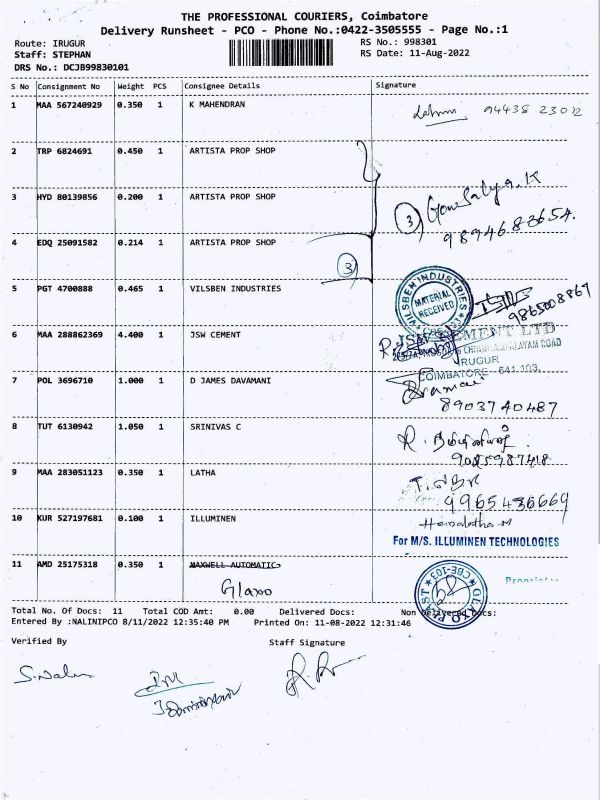 THE PROFESSIONAL COURIERS, Coimbatore
Delivery Runsheet - PCO - Phone No.:0422-3505555 - Page No.:1
Route: IRUGUR RS No.: 998301
Staff: STEPHAN RS Date: 11-Aug-2022
DRS No.: DCJB99830101
S No Consignment No Weight PCS Consignee Details Signature
1 MAA 567240929 0.350 1 K MAHENDRAN 94435 23012
2 TRP 6824691 0.450 1 ARTISTA PROP SHOP
3 HYD 80139856 0.200 1 ARTISTA PROP SHOP
3 Gowsalya. K
9894683654.
4 EDQ 25091582 0.214 1 ARTISTA PROP SHOP
3
5 PGT 4700888 0.465 1 VILSBEN INDUSTRIES
VILSBEN INDUSTRIES
MATERIAL RECEIVED
9865008867
6 MAA 288862369 4.400 1 JSW CEMENT
JSW CEMENT LTD
IRUGUR
COIMBATORE - 641 103.
7 POL 3696710 1.000 1 D JAMES DAVAMANI
8903740487
8 TUT 6130942 1.050 1 SRINIVAS C
9025987418
9 MAA 283051123 0.350 1 LATHA
9965436669
10 KUR 527197681 0.100 1 ILLUMINEN
Hemalatha M
For M/S. ILLUMINEN TECHNOLOGIES
11 AMD 25175318 0.350 1 MAXWELL AUTOMATIC
Glaxo
CBE-103
Total No. Of Docs: 11 Total COD Amt: 0.00 Delivered Docs: Non Delivered Docs:
Entered By :NALINIPCO 8/11/2022 12:35:40 PM Printed On: 11-08-2022 12:31:46
Verified By Staff Signature